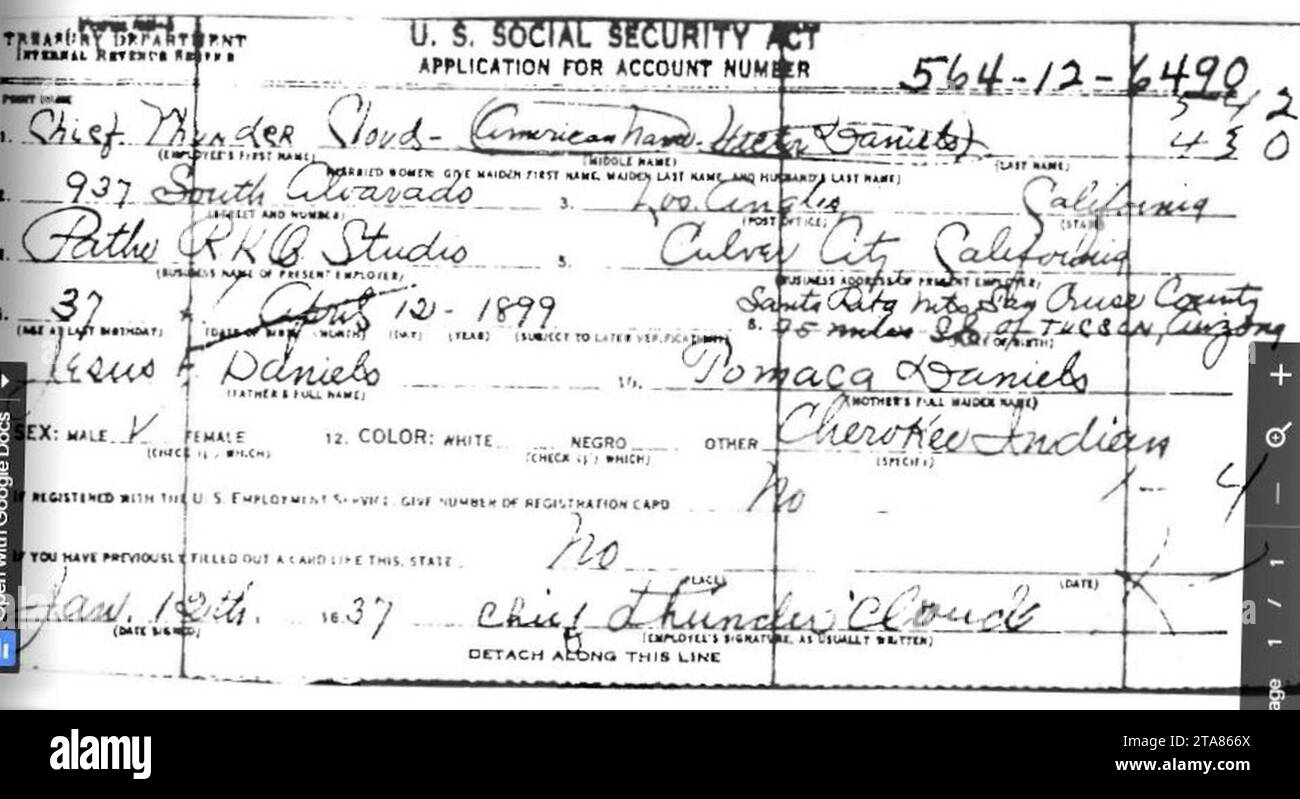 TREASURY DEPARTMENT
INTERNAL REVENUE SERVICE
U. S. SOCIAL SECURITY ACT
APPLICATION FOR ACCOUNT NUMBER
564-12-6490
PRINT NAME
1. Chief Thunder Cloud - (American Name. Daniels)
(EMPLOYEE'S FIRST NAME) (MIDDLE NAME) (LAST NAME)
(MARRIED WOMEN: GIVE MAIDEN FIRST NAME, MAIDEN LAST NAME, AND HUSBAND'S LAST NAME)
2. 937 South Alvarado 3. Los. Angles California
(STREET AND NUMBER) (POST OFFICE) (STATE)
Pathe R.K.O. Studio 5. Culver City California
(BUSINESS NAME OF PRESENT EMPLOYER) (BUSINESS ADDRESS OF PRESENT EMPLOYER)
37 April 12 - 1899 8. Santa Rita Mts. San Cruse County
75 miles S.E. of TUCSON, Arizona
(AGE AT LAST BIRTHDAY) (DATE OF BIRTH: (MONTH) (DAY) (YEAR) (SUBJECT TO LATER VERIFICATION) (PLACE OF BIRTH)
Jesus Daniels 10. Tomaca Daniels
(FATHER'S FULL NAME) (MOTHER'S FULL MAIDEN NAME)
SEX: MALE V FEMALE 12. COLOR: WHITE NEGRO OTHER Cherokee Indian
(CHECK (√) WHICH) (CHECK (√) WHICH) (SPECIFY)
IF REGISTERED WITH THE U. S. EMPLOYMENT SERVICE, GIVE NUMBER OF REGISTRATION CARD No
1 - 4
IF YOU HAVE PREVIOUSLY FILLED OUT A CARD LIKE THIS, STATE No
(PLACE) (DATE)
Jan. 12th. 1937 Chief Thunder Cloud
(DATE SIGNED) (EMPLOYEE'S SIGNATURE, AS USUALLY WRITTEN)
DETACH ALONG THIS LINE
Open with Google Docs
age 1 / 1
alamy
Image ID: 2TA866X
www.alamy.com